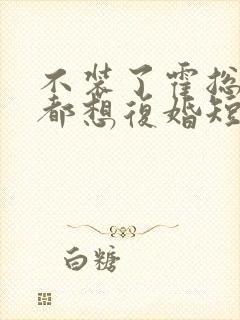 不装了霍总
都想復婚短
白糖